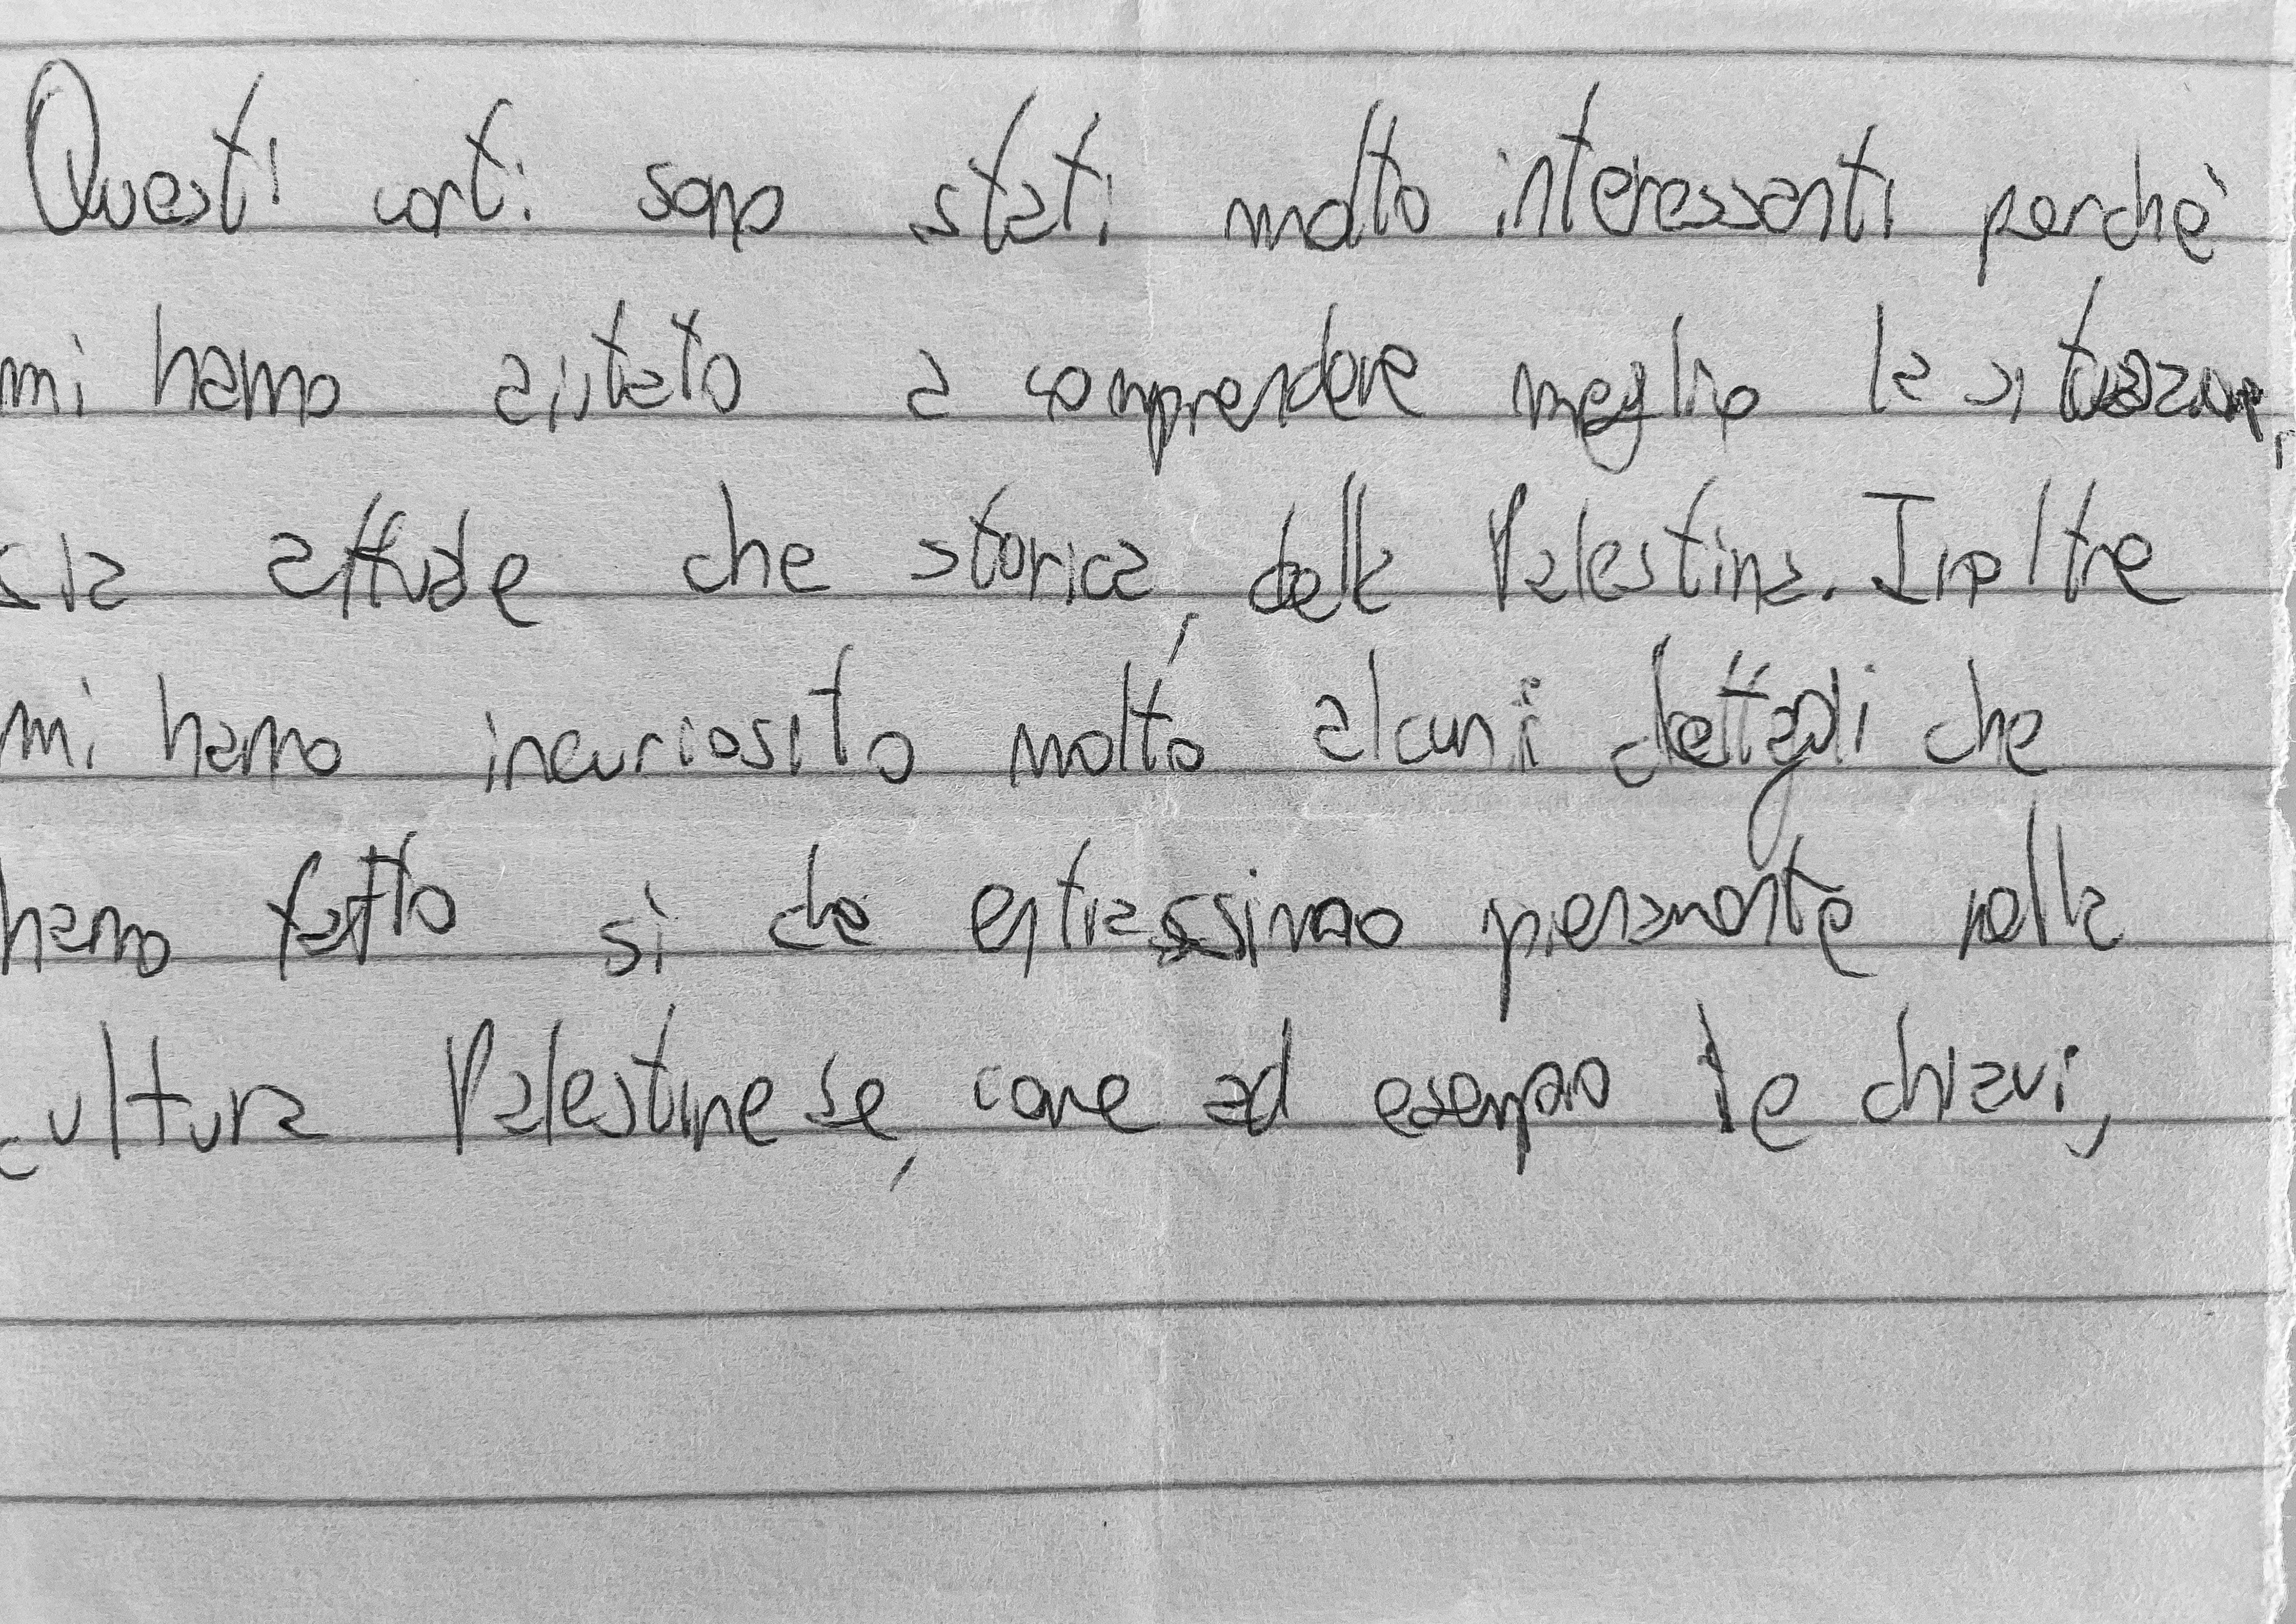 Questi corti sono stati molto interessanti perchè
mi hanno aiutato a comprendere meglio la situazione,
sia attuale che storica, della Palestina. Inoltre
mi hanno incuriosito molto alcuni dettagli che
hanno fatto sì che entrassimo pienamente nella
cultura Palestinese, come ad esempio le chiavi,